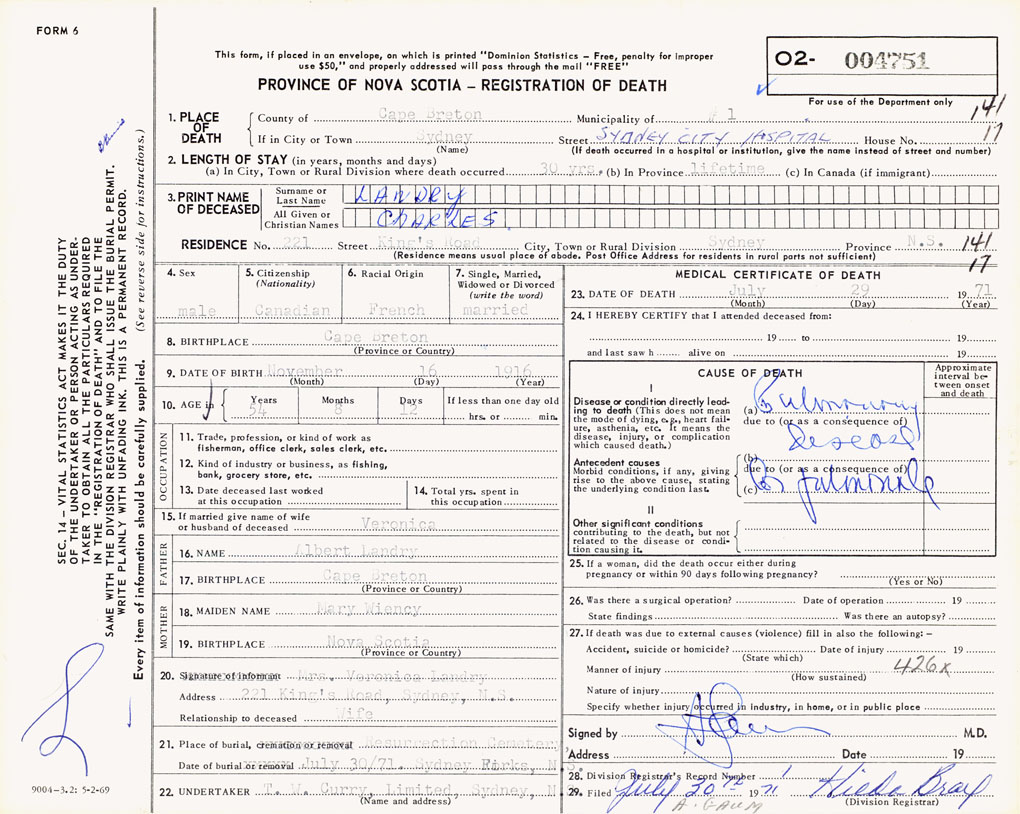 FORM 6
This form, if placed in an envelope, on which is printed "Dominion Statistics – Free, penalty for improper
use $50," and properly addressed will pass through the mail "FREE"
PROVINCE OF NOVA SCOTIA – REGISTRATION OF DEATH
O2- 004751
For use of the Department only
141
17
1. PLACE OF DEATH
County of Cape Breton Municipality of # 1
If in City or Town Sydney Street SYDNEY CITY HOSPITAL House No.
(Name) (If death occurred in a hospital or institution, give the name instead of street and number)
2. LENGTH OF STAY (in years, months and days)
(a) In City, Town or Rural Division where death occurred 30 yrs. (b) In Province lifetime (c) In Canada (if immigrant)
3. PRINT NAME OF DECEASED
Surname or Last Name LANDRY
All Given or Christian Names CHARLES
RESIDENCE No. 221 Street King's Road City, Town or Rural Division Sydney Province N.S. 141
(Residence means usual place of abode. Post Office Address for residents in rural parts not sufficient) 17
4. Sex
male
5. Citizenship
(Nationality)
Canadian
6. Racial Origin
French
7. Single, Married,
Widowed or Divorced
(write the word)
married
8. BIRTHPLACE Cape Breton
(Province or Country)
9. DATE OF BIRTH November 16 1916
(Month) (Day) (Year)
10. AGE in
Years Months Days If less than one day old
54 8 12 hrs. or min.
OCCUPATION
11. Trade, profession, or kind of work as
fisherman, office clerk, sales clerk, etc.
12. Kind of industry or business, as fishing,
bank, grocery store, etc.
13. Date deceased last worked
at this occupation
14. Total yrs. spent in
this occupation
15. If married give name of wife
or husband of deceased Veronica
FATHER
16. NAME Albert Landry
17. BIRTHPLACE Cape Breton
(Province or Country)
MOTHER
18. MAIDEN NAME Mary Wiency
19. BIRTHPLACE Nova Scotia
(Province or Country)
20. Signature of informant Mrs. Veronica Landry
Address 221 King's Road, Sydney, N.S.
Relationship to deceased Wife
21. Place of burial, cremation or removal Resurrection Cemetery,
Date of burial or removal July 30/71. Sydney Forks, N.S.
22. UNDERTAKER T. W. Curry, Limited, Sydney, N
(Name and address)
MEDICAL CERTIFICATE OF DEATH
23. DATE OF DEATH July 29 1971
(Month) (Day) (Year)
24. I HEREBY CERTIFY that I attended deceased from:
19 to 19
and last saw h alive on 19
CAUSE OF DEATH
Approximate
interval be-
tween onset
and death
I
Disease or condition directly lead-
ing to death (This does not mean
the mode of dying, e.g., heart fail-
ure, asthenia, etc. It means the
disease, injury, or complication
which caused death.)
(a) Pulmonary
due to (or as a consequence of)
disease
Antecedent causes
Morbid conditions, if any, giving
rise to the above cause, stating
the underlying condition last.
(b)
due to (or as a consequence of)
(c) Cor pulmonale
II
Other significant conditions
contributing to the death, but not
related to the disease or condi-
tion causing it.
25. If a woman, did the death occur either during
pregnancy or within 90 days following pregnancy?
(Yes or No)
26. Was there a surgical operation? Date of operation 19
State findings Was there an autopsy?
27. If death was due to external causes (violence) fill in also the following: –
Accident, suicide or homicide? Date of injury 19
(State which)
Manner of injury 426x
(How sustained)
Nature of injury
Specify whether injury occurred in industry, in home, or in public place
Signed by M.D.
Address Date 19
28. Division Registrar's Record Number 1
29. Filed July 30th 1971 Hilda Bray
A. GAUM (Division Registrar)
SEC. 14 – VITAL STATISTICS ACT MAKES IT THE DUTY
OF THE UNDERTAKER OR PERSON ACTING AS UNDER-
TAKER TO OBTAIN ALL THE PARTICULARS REQUIRED
IN THE "REGISTRATION OF DEATH" AND TO FILE THE
SAME WITH THE DIVISION REGISTRAR WHO SHALL ISSUE THE BURIAL PERMIT.
WRITE PLAINLY WITH UNFADING INK. THIS IS A PERMANENT RECORD.
Every item of information should be carefully supplied. (See reverse side for instructions.)
9004-3.2: 5-2-69